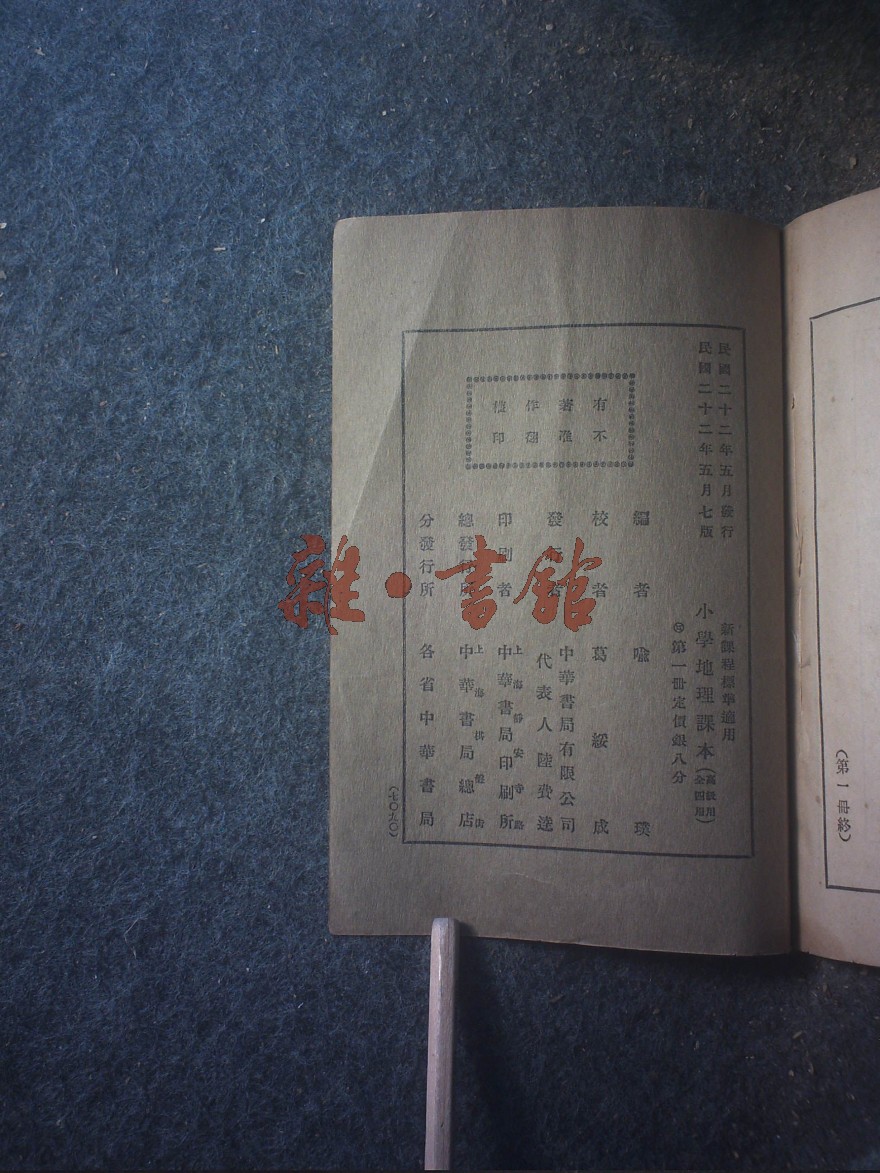 民國二十二年五月發行
民國二十二年五月七版
新課程標準適用
小學地理課本（高級用全四冊）
第一冊定價銀八分
有著作權
不准翻印
編者 喻璞
校者 葛綏成
發行者 中華書局有限公司
代表人陸費逵
印刷者 上海靜安寺路
中華書局印刷所
總發行所 上海棋盤街
中華書局總店
分發行所 各省中華書局
（七〇九〇）
（第一冊終）
雜·書館